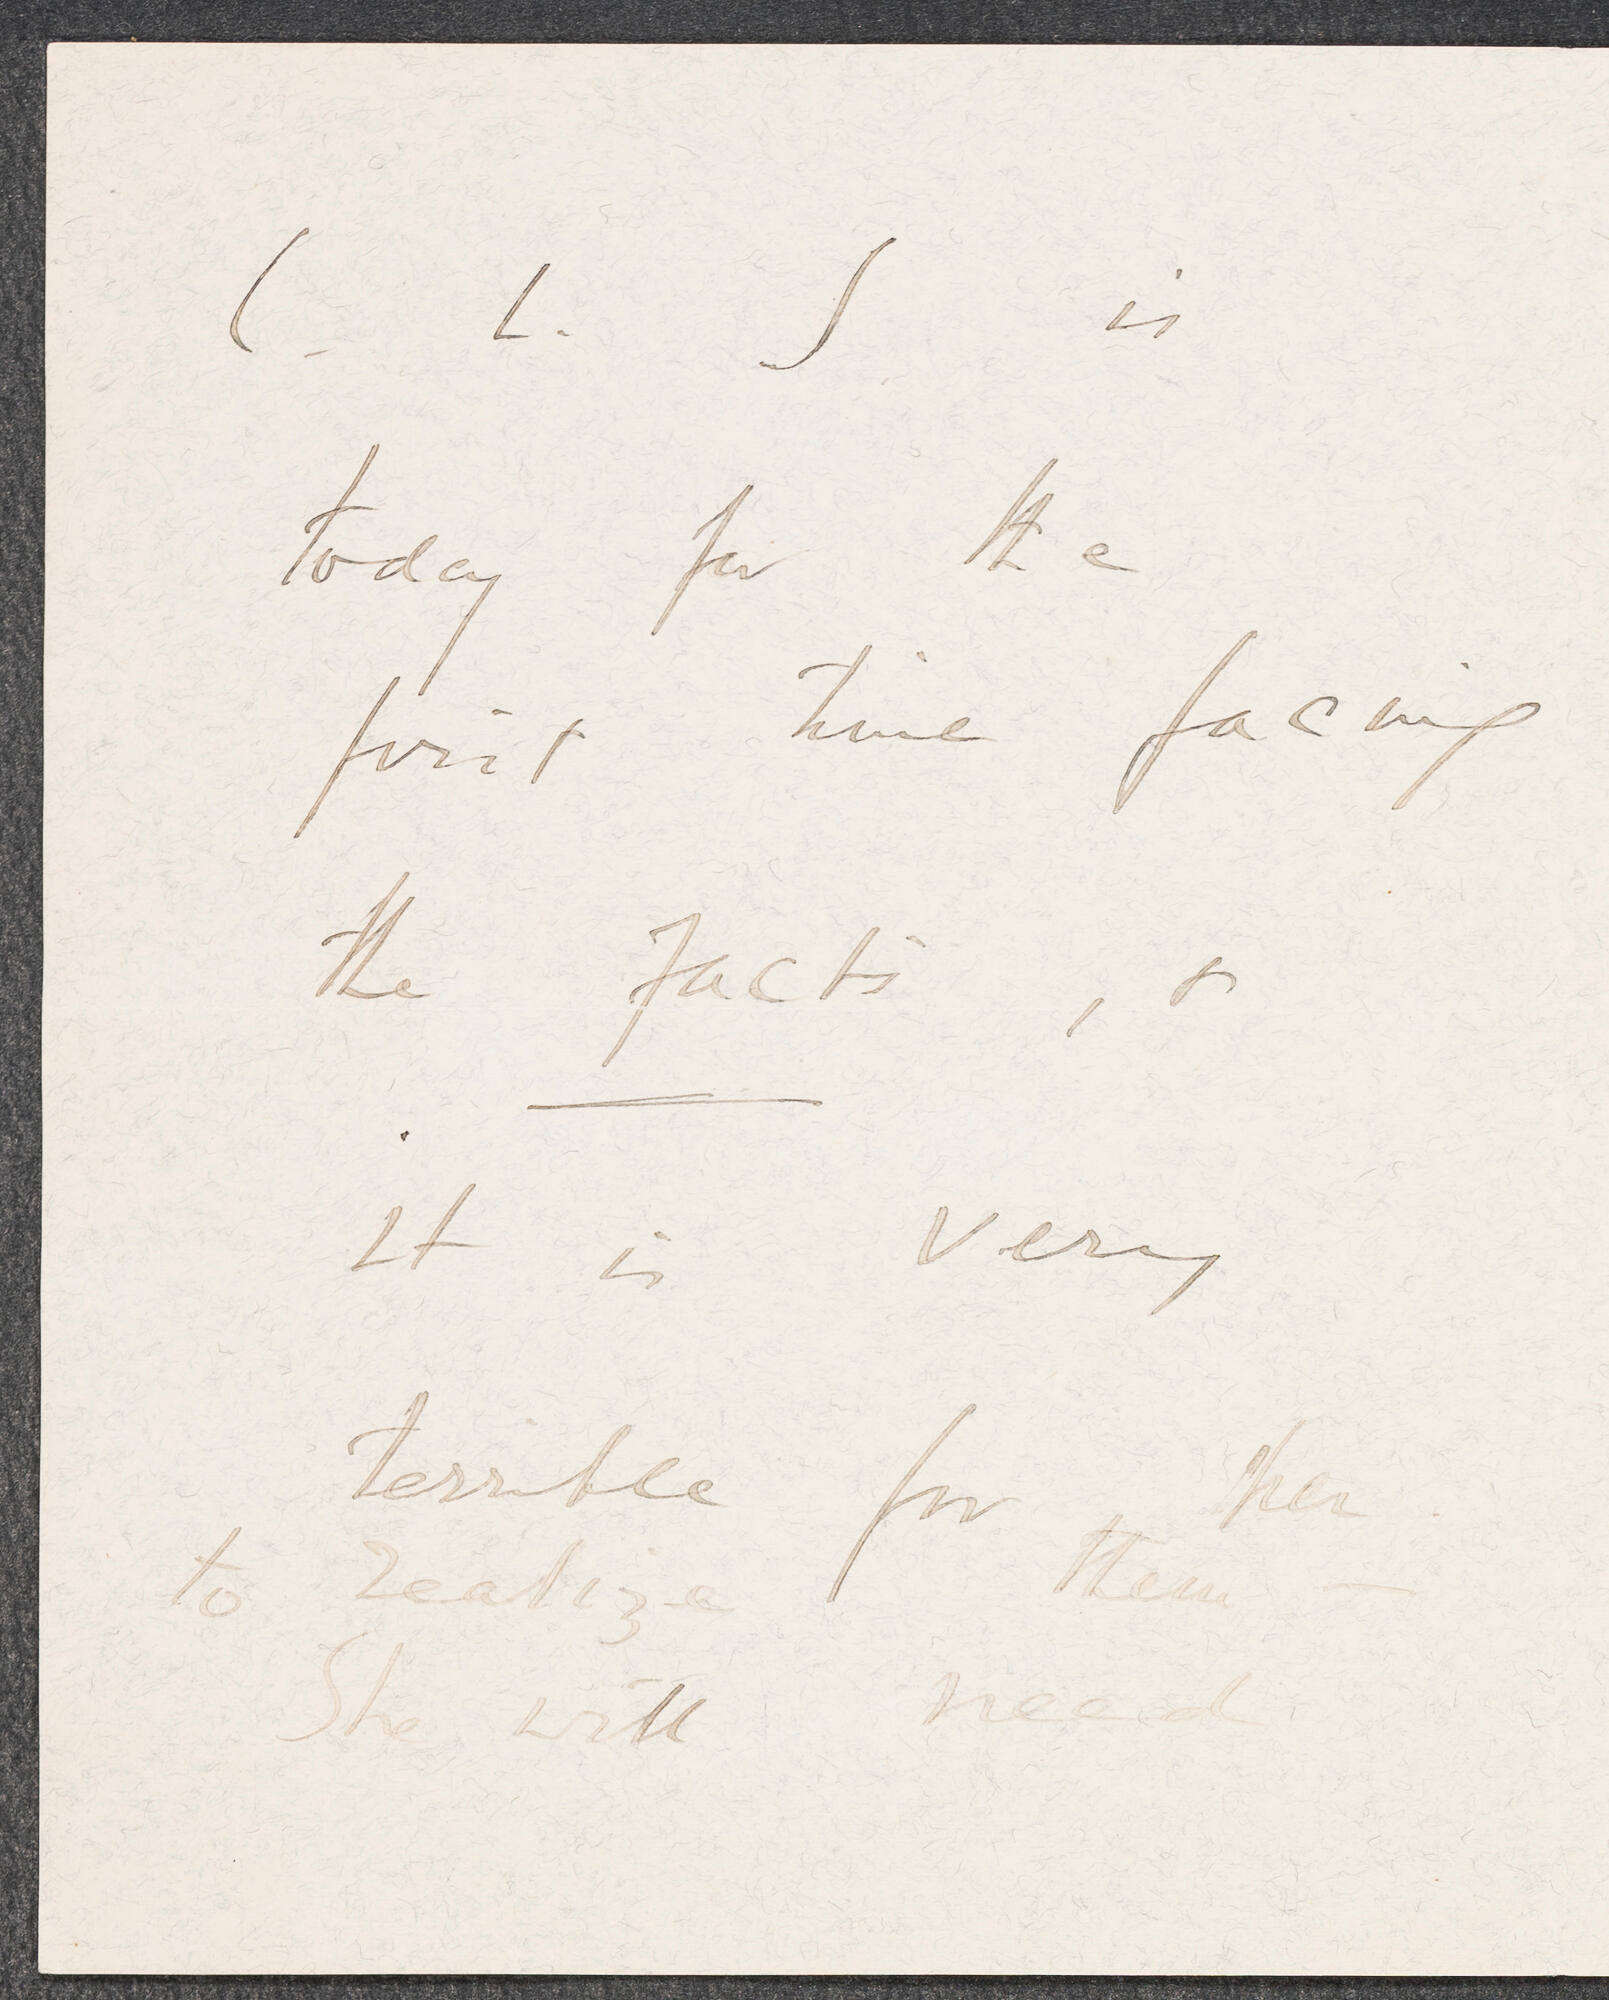 C. L. S is
today for the
first time facing
the facts, &
it is very
terrible for her
to realize them —
She will need